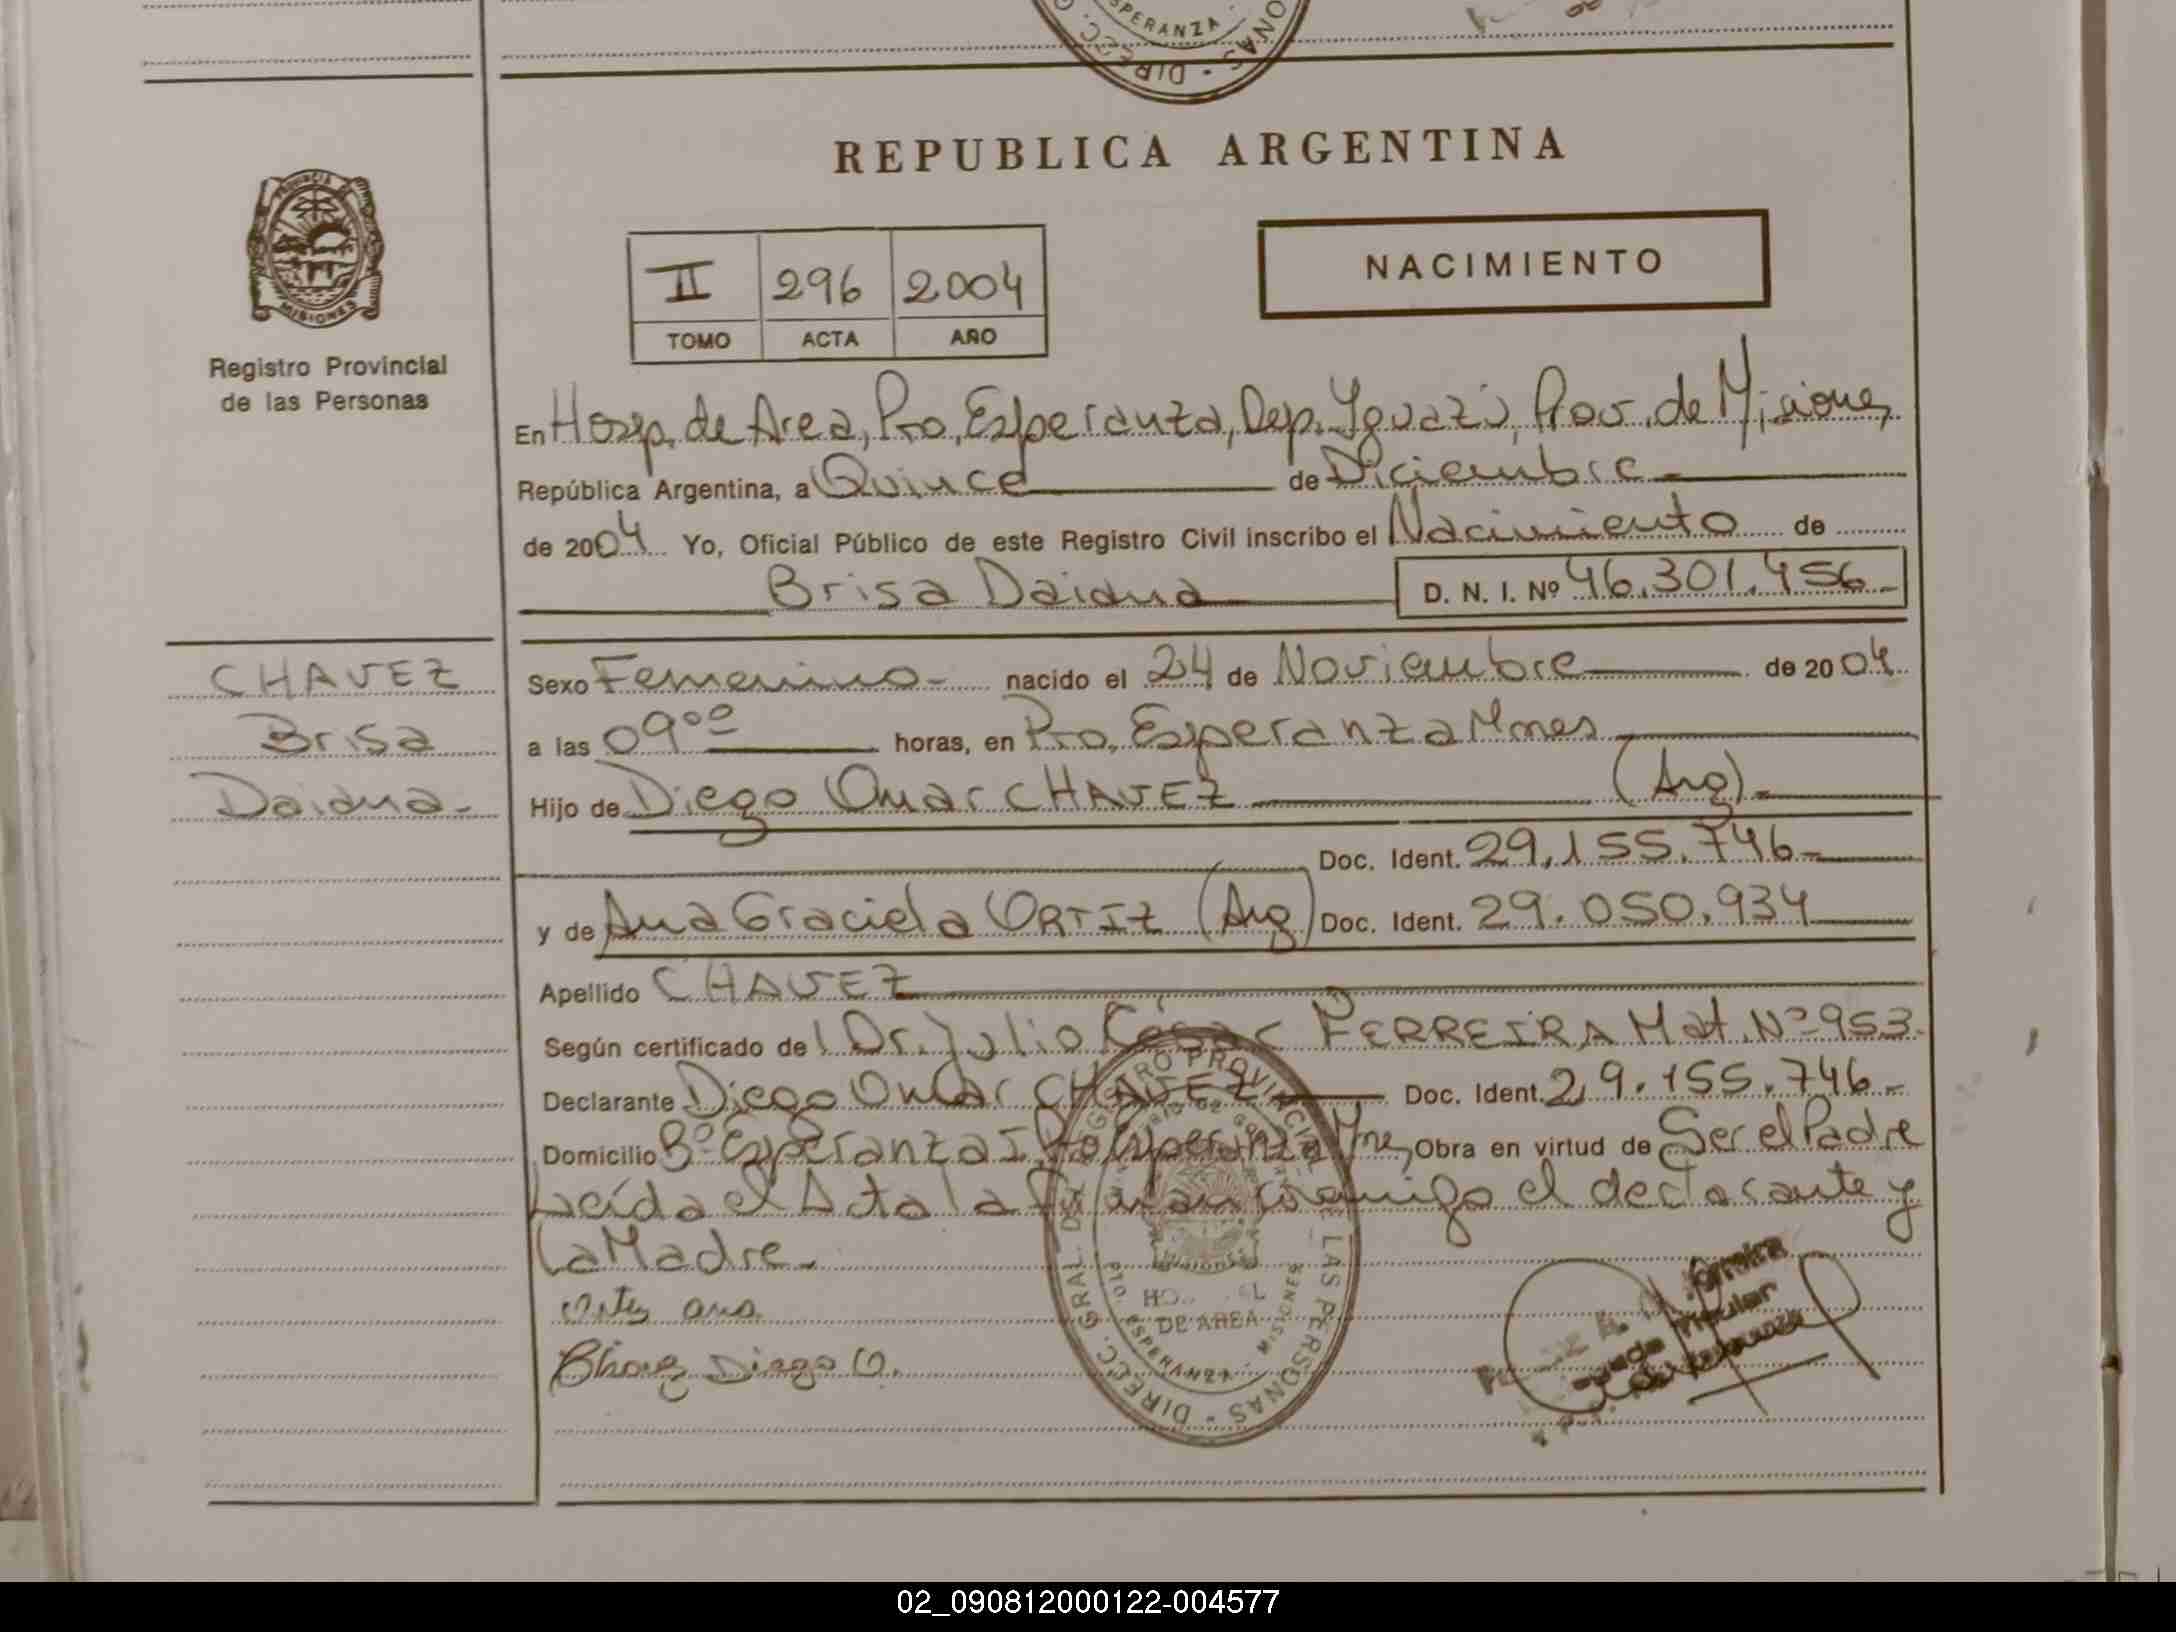 ESPERANZA
DIRECC. G ONAS
REPUBLICA ARGENTINA
PROVINCIA DE
MISIONES
II 296 2004
TOMO ACTA AÑO
NACIMIENTO
Registro Provincial
de las Personas
En Hosp. de Area, Pto. Esperanza, Dep. Iguazú, Prov. de Misiones
República Argentina, a Quince de Diciembre
de 2004 Yo, Oficial Público de este Registro Civil inscribo el Nacimiento de
Brisa Daiana D. N. I. Nº 46.301.456.-
CHAVEZ
Brisa
Daiana-
Sexo Femenino- nacido el 24 de Noviembre de 2004
a las 09ºº horas, en Pto. Esperanza Mnes
Hijo de Diego Omar CHAVEZ (Arg)-
Doc. Ident. 29.155.746-
y de Ana Graciela ORTIZ (Arg) Doc. Ident. 29.050.934
Apellido CHAVEZ
Según certificado de Dr. Julio César FERREIRA Mat. Nº 953.
Declarante Diego Omar CHAVEZ Doc. Ident. 29.155.746.-
Domicilio Bº Esperanza I Pto Esperanza Mnes Obra en virtud de Ser el Padre
Leída el Acta la firman conmigo el declarante y
La Madre.
DIRECC. GRAL. DEL REGISTRO PROVINCIAL DE LAS PERSONAS
DE AREA
ESPERANZA - MISIONES
Ortiz ana.
Chavez Diego O.
Titular
02_090812000122-004577